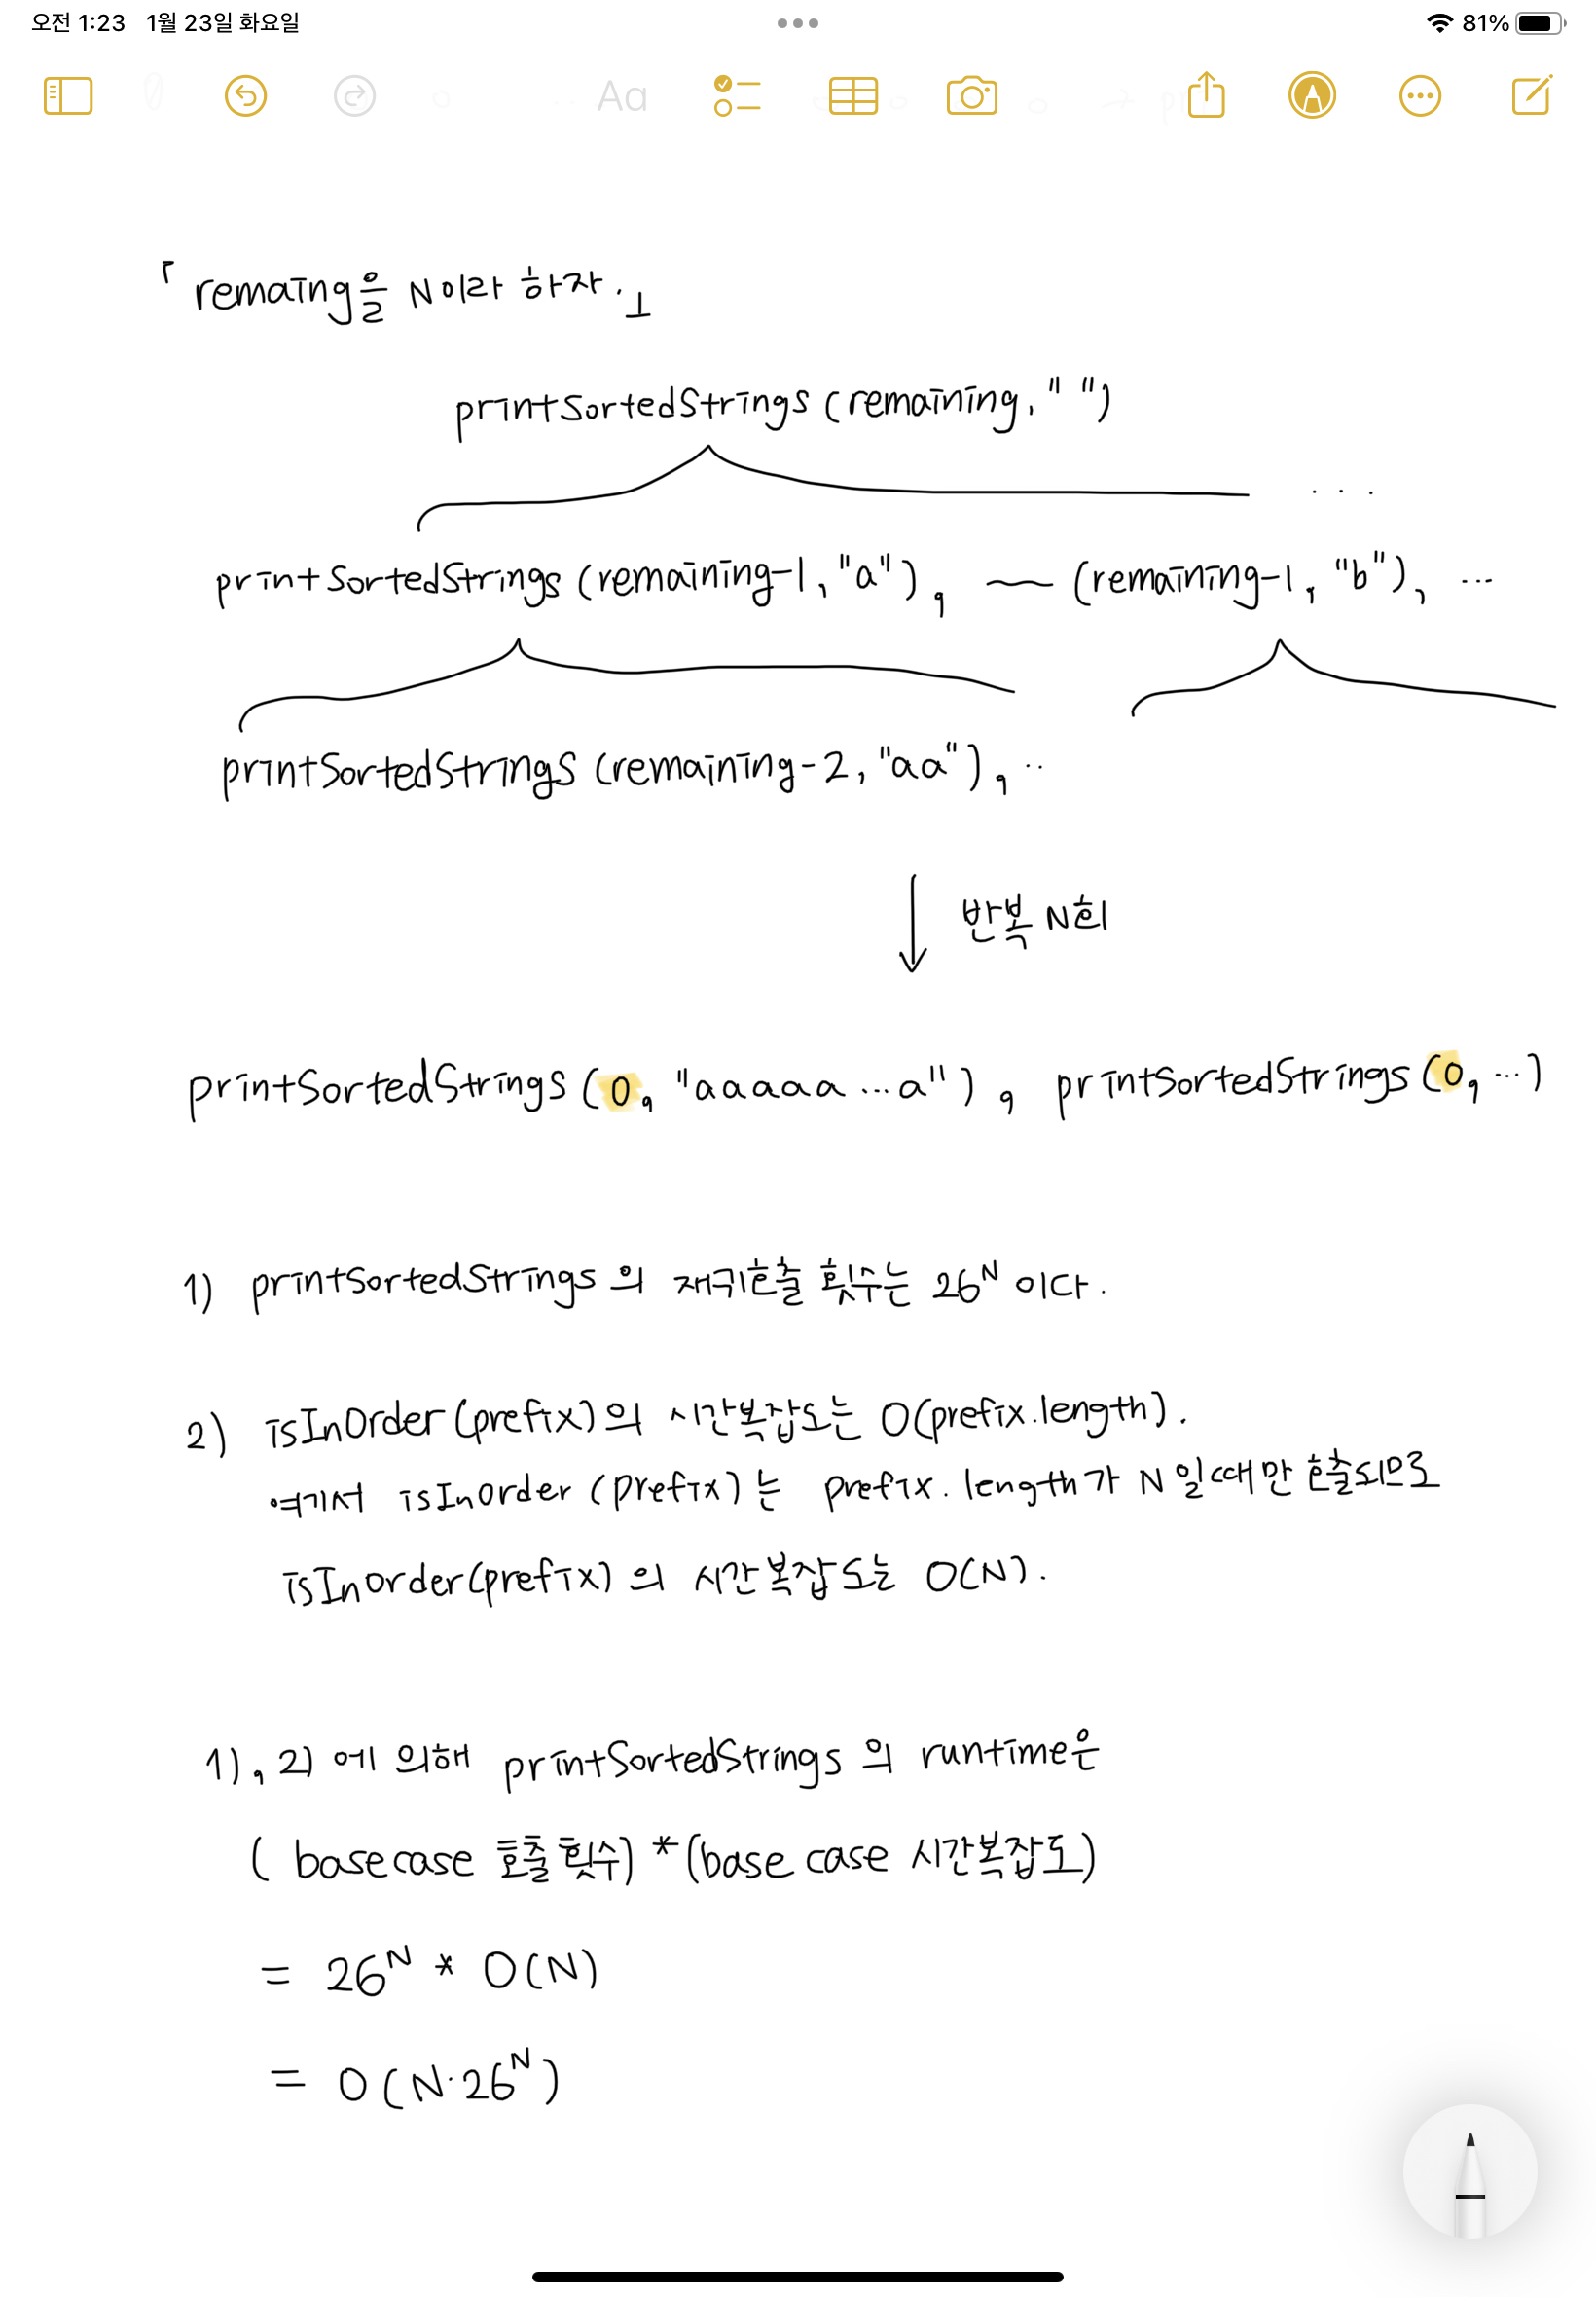 오전 1:23 1월 23일 화요일
81%
Aa
「remaing을 N이라 하자.」
printSortedStrings (remaining, " ")
...
printSortedStrings (remaining-1, "a"), ~ (remaining-1, "b"), ...
printSortedStrings (remaining-2, "aa"), ..
↓ 반복 N회
printSortedStrings (0, "aaaaa...a"), printSortedStrings (0, ...)
1) printSortedStrings의 재귀호출 횟수는 26^N 이다.
2) isInOrder (prefix)의 시간복잡도는 O(prefix.length).
여기서 isInorder (prefix)는 prefix.length가 N일때만 호출되므로
isInorder(prefix)의 시간복잡도는 O(N).
1), 2)에 의해 printSortedStrings의 runtime은
( basecase 호출 횟수) * (base case 시간복잡도)
= 26^N * O(N)
= O(N·26^N)